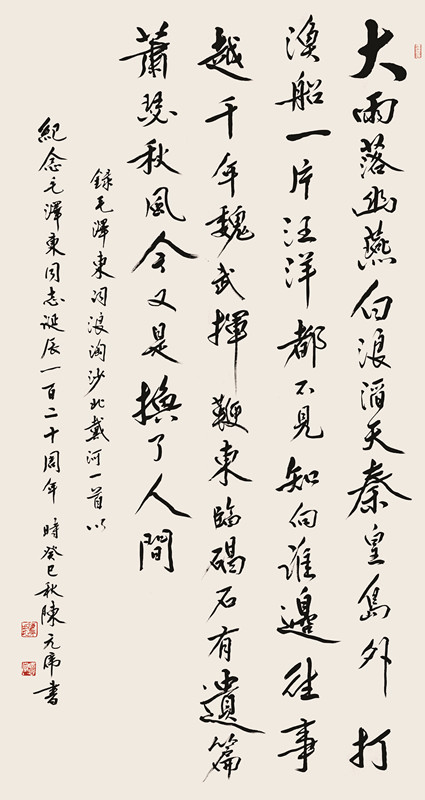 大雨落幽燕白浪滔天秦皇島外打
漁船一片汪洋都不見知向誰邊往事
越千年魏武揮鞭東臨碣石有遺篇
蕭瑟秋風今又是換了人間
錄毛澤東詞浪淘沙北戴河一首以
紀念毛澤東同志誕辰一百二十周年 時癸巳秋陳元書